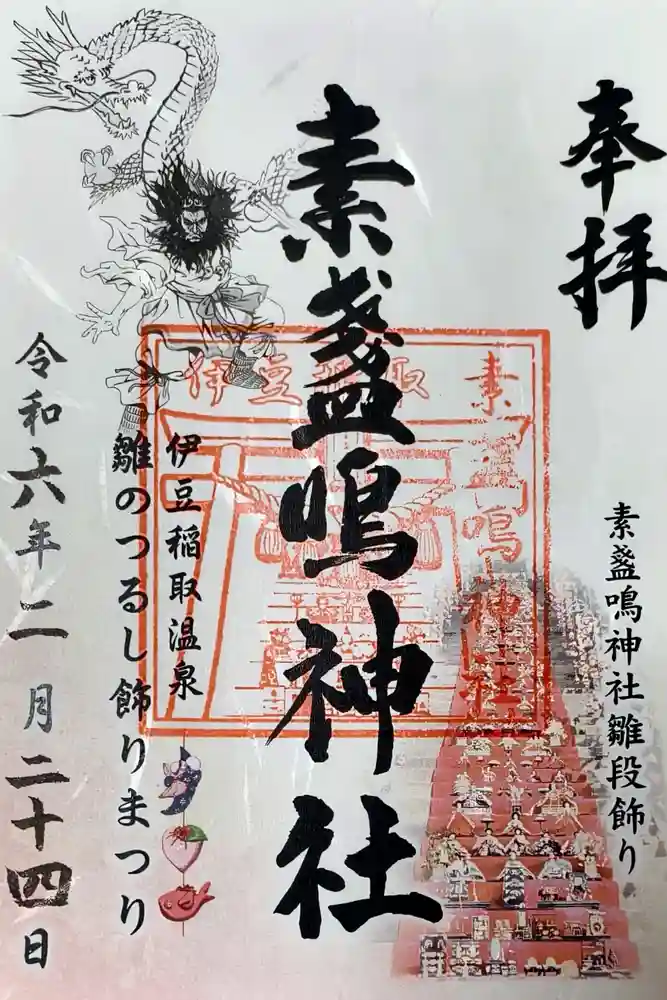 奉拝
素盞嗚神社雛段飾り
素盞嗚神社
伊豆稲取
素盞嗚神社
伊豆稲取温泉
雛のつるし飾りまつり
令和六年二月二十四日